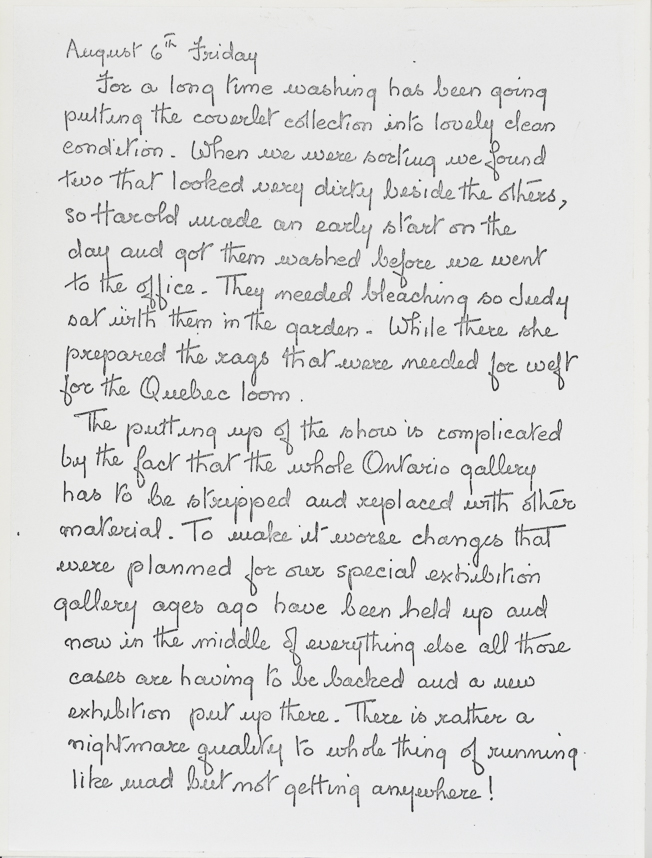 August 6th Friday
For a long time washing has been going
putting the coverlet collection into lovely clean
condition. When we were sorting we found
two that looked very dirty beside the others,
so Harold made an early start on the
day and got them washed before we went
to the office. They needed bleaching so Judy
sat with them in the garden. While there she
prepared the rags that were needed for weft
for the Quebec loom.
The putting up of the show is complicated
by the fact that the whole Ontario gallery
has to be stripped and replaced with other
material. To make it worse changes that
were planned for our special exhibition
gallery ages ago have been held up and
now in the middle of everything else all those
cases are having to be backed and a new
exhibition put up there. There is rather a
nightmare quality to whole thing of running
like mad but not getting anywhere!